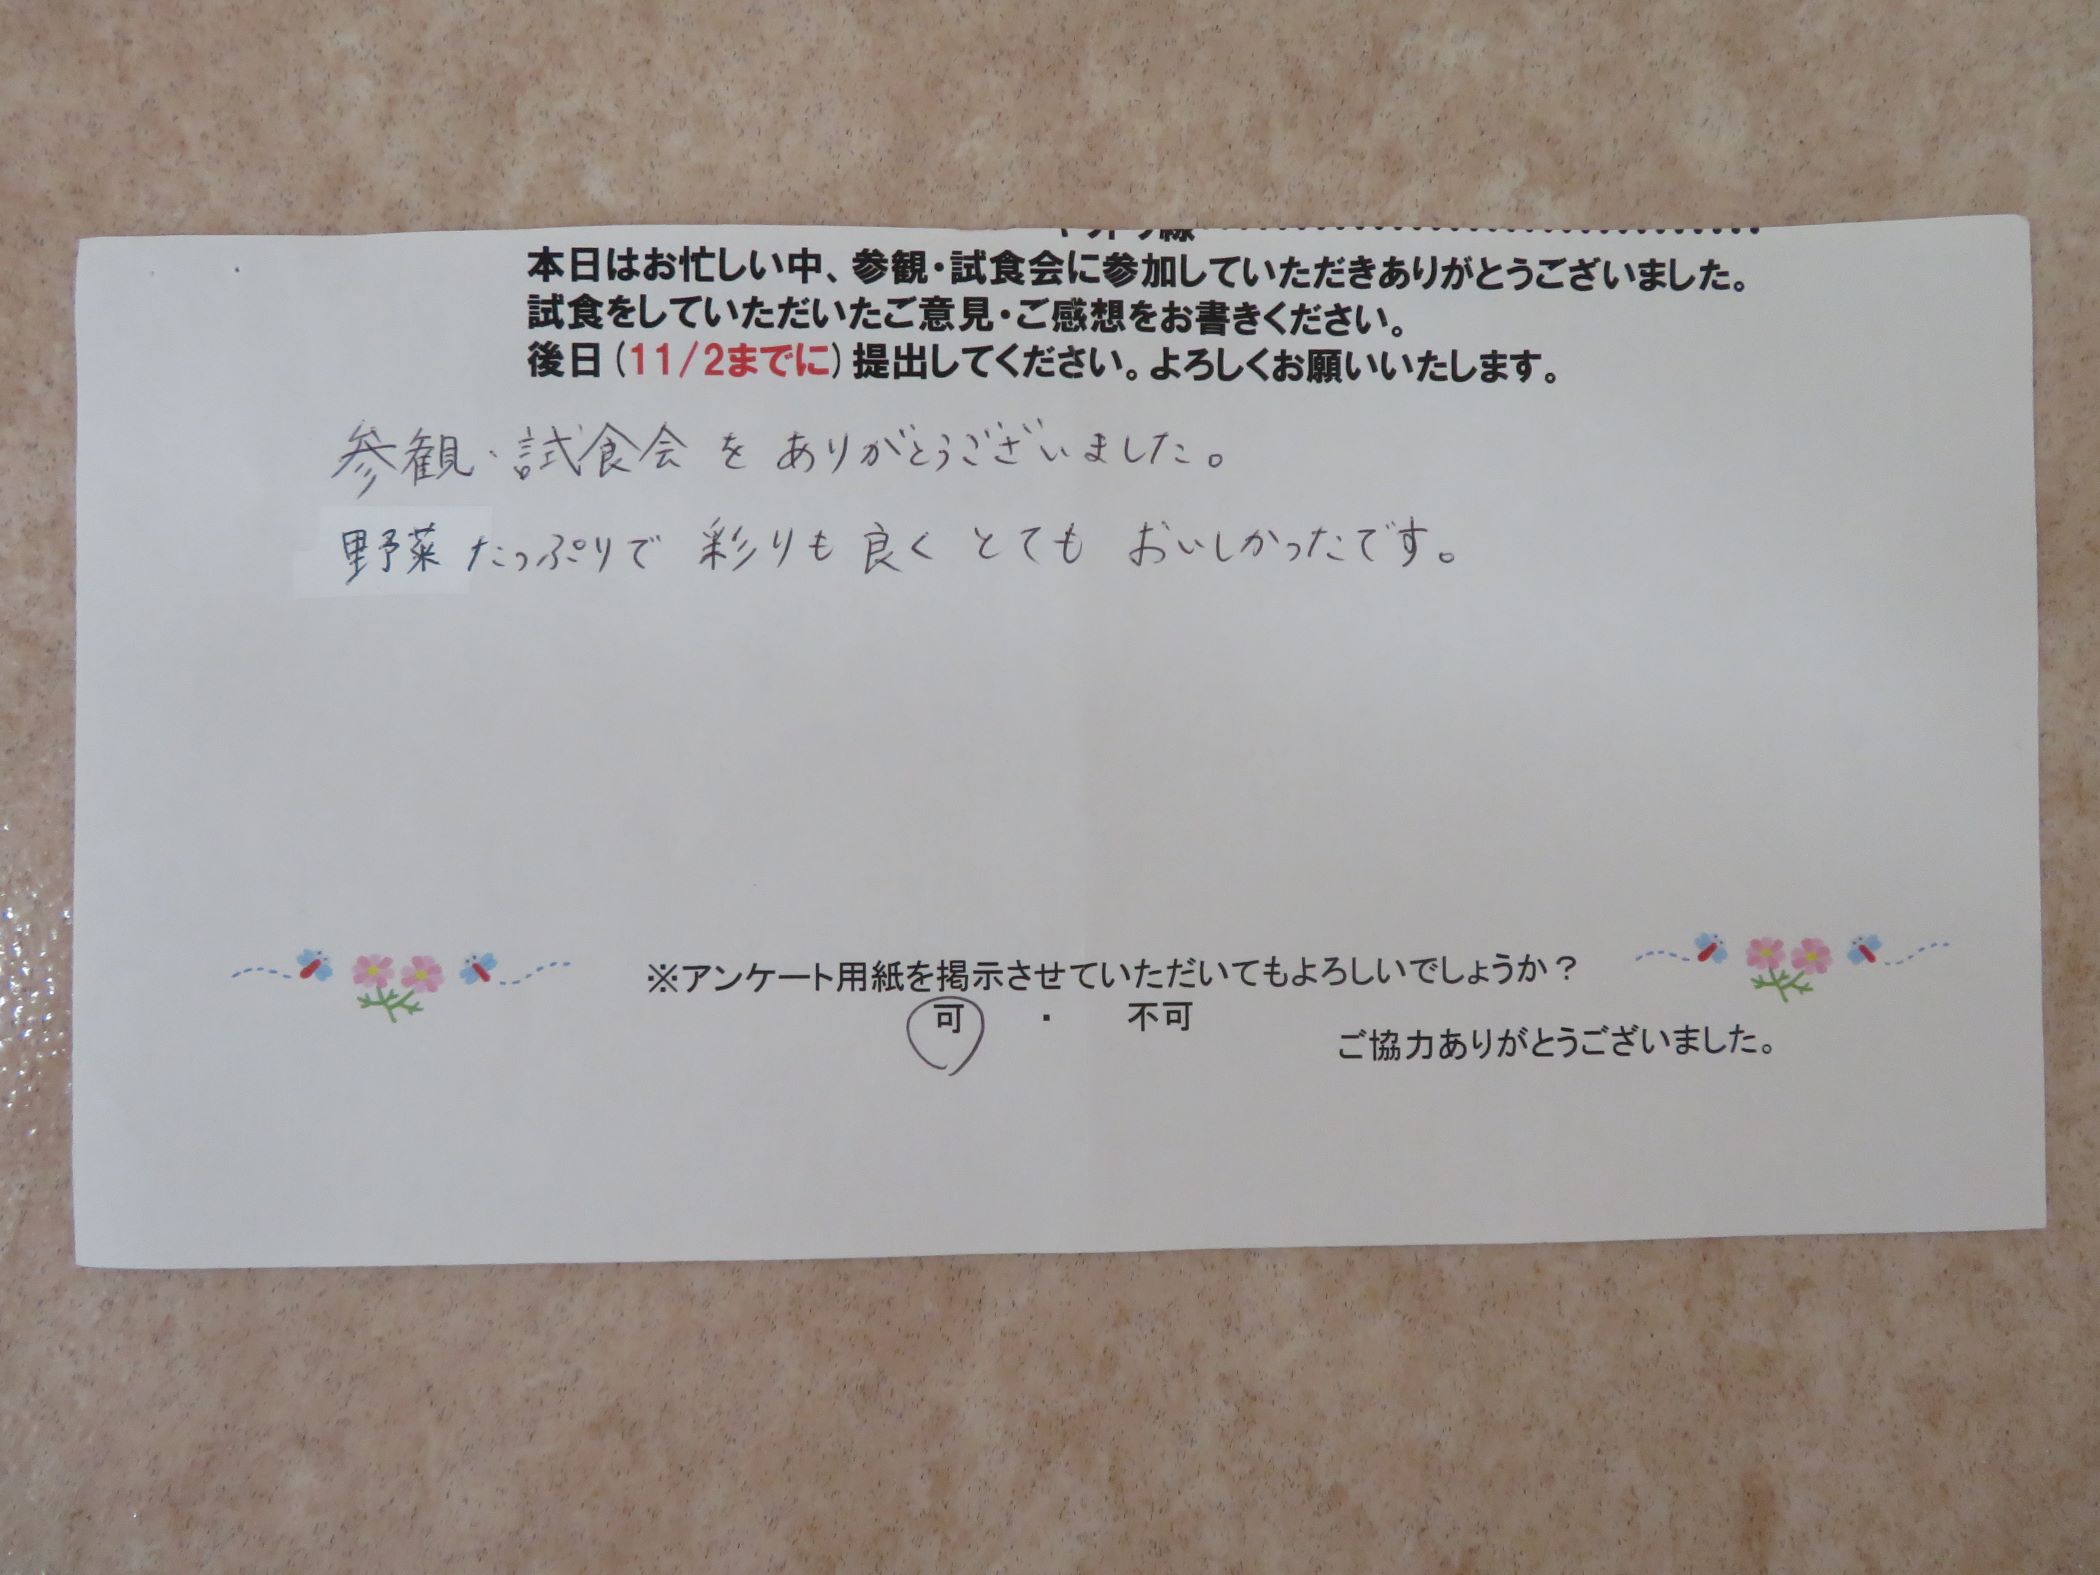 本日はお忙しい中、参観・試食会に参加していただきありがとうございました。
試食をしていただいたご意見・ご感想をお書きください。
後日(11/2までに)提出してください。よろしくお願いいたします。
参観・試食会を ありがとうございました。
野菜たっぷりで 彩りも良く とても おいしかったです。
※アンケート用紙を掲示させていただいてもよろしいでしょうか？
可 ・ 不可
ご協力ありがとうございました。